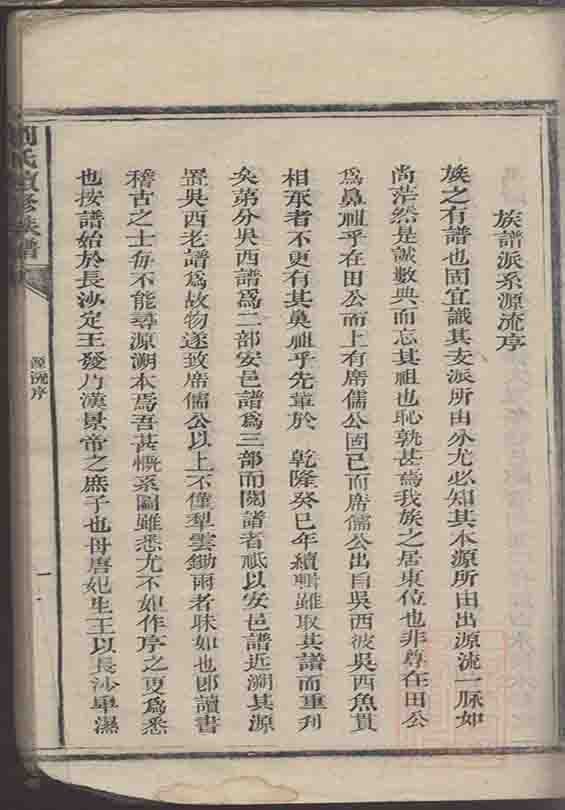 族譜派系源流序
族之有譜也固宜識其支派所由分尤必知其本源所由出源流一脉如
尚茫然是誠數典而忘其祖也恥孰甚焉我族之居東位也非尊在田公
爲鼻祖乎在田公而上有席儒公固已而席儒公出自吳西彼吳西魚貫
相承者不更有其鼻祖乎先輩於 乾隆癸巳年續輯雖取其譜而重刋
矣第分吳西譜爲二部安邑譜爲三部而閱譜者祇以安邑譜近溯其源
置吳西老譜爲故物遂致席儒公以上不僅犁雲鋤雨者昧如也卽讀書
稽古之士每不能尋源溯本焉吾甚慨系圖雖悉尤不如作序之更爲悉
也按譜始於長沙定王發乃漢景帝之庶子也母唐妃生王以長沙卑濕
劉氏續修族譜
源流序
一